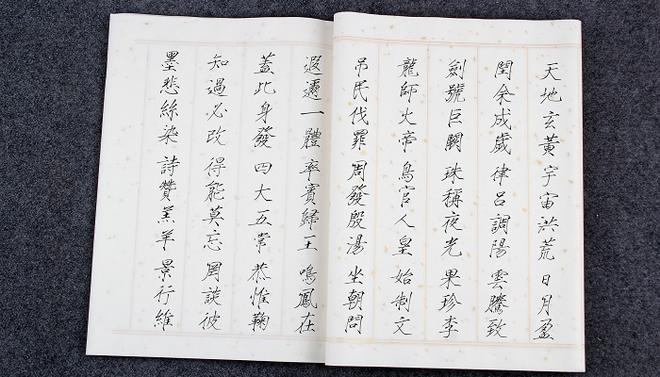 天地玄黃 宇宙洪荒 日月盈
閏余成歲 律呂調陽 雲騰致
劍號巨闕 珠稱夜光 果珍李
龍師火帝 鳥官人皇 始制文
吊民伐罪 周發殷湯 坐朝問
遐邇一體 率賓歸王 鳴鳳在
蓋此身發 四大五常 恭惟鞠
知過必改 得能莫忘 罔談彼
墨悲絲染 詩贊羔羊 景行維